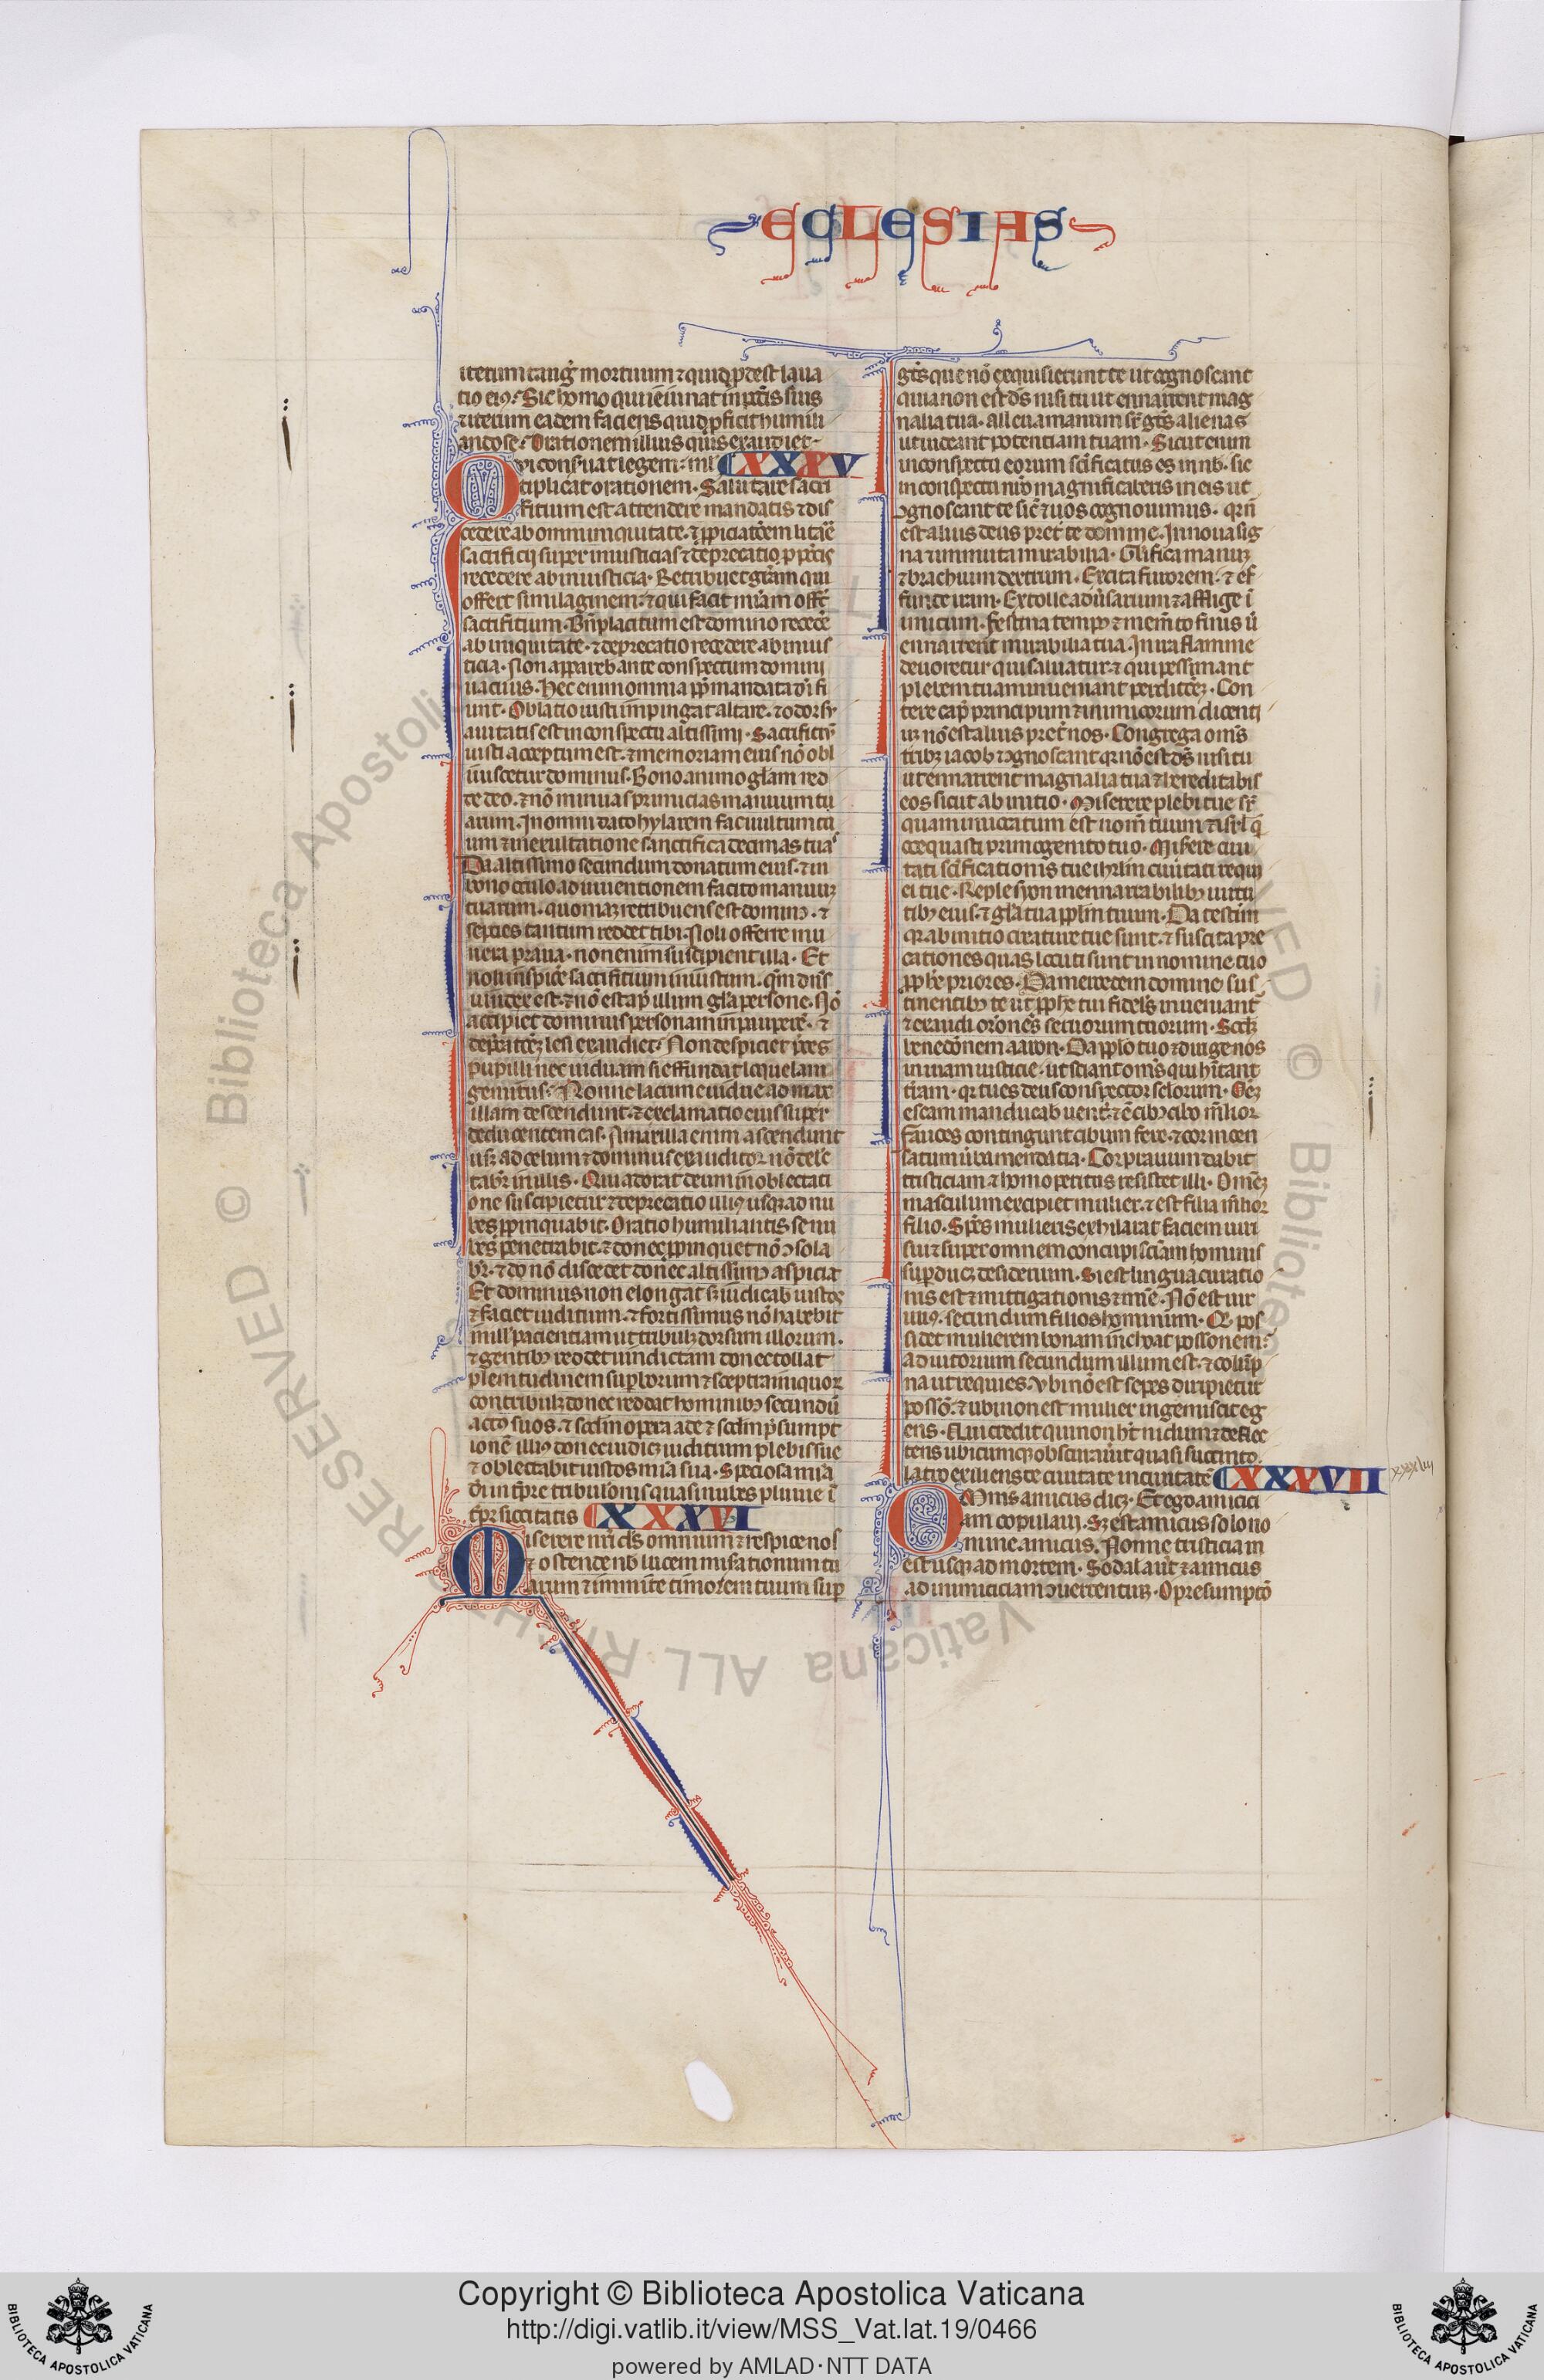 ECCLESIAS
iterum tangit mortuum ⁊ quid ꝓdest laua
tio eiꝰ? Sic homo qui ieiunat in pctis suis
⁊ iterum eadem faciens quid ꝓficit humili
ando se? Orationem illius quis exaudiet.
Qui conseruat legem: ml CXXXV
tiplicat orationem. Salutare sacri
fitium est attendere mandatis ⁊ dis
cedere ab omni iniquitate.
sacrificij super iniusticias ⁊ deprecatio ꝓ pctis
recedere ab iniusticia. Retribuet gram qui
offert similaginem: ⁊ qui facit miam offert
sacrifitium. Bnplacitum est domino recedere
ab iniquitate. ⁊ deprecatio recedere ab inius
ticia. Non apparebis ante conspectum domini
uacuus. Hec enim omnia ꝓp mandata di fi
unt. Oblatio iusti inpingat altare. ⁊ odor su
auitatis est in conspectu altissimi. Sacrifitium
iusti acceptum est. ⁊ memoriam eius nō obl
iuiscetur dominus. Bono animo gliam red
de deo. ⁊ nō minuas primicias manuum tu
arum. In omni dato hylarem fac uultum tu
um ⁊ in exultatione sanctifica decimas tuas
Da altissimo secundum donatum eius. ⁊ in
bono oculo ad inuentionem facito manuum
tuarum. quoniam retribuens est dominꝰ. ⁊
septies tantum reddet tibi. Noli offerre mu
nera praua. non enim suscipient illa. Et
noli inspicere sacrifitium iniustum. qm dns
iudex est. ⁊ nō est apud illum gla persone. Nō
accipiet dominus personam in paupere. ⁊
deprecationem lesi exaudiet. Non despiciet preces
pupilli nec uiduam si effundat loquelam
gemitus. Nonne lacrime uidue ad max
illam descendunt. ⁊ exclamatio eius super
deducentem eas. A maxilla enim ascendunt
usqꝫ ad celum ⁊ dominus exauditor nō delec
tabitur in illis. Qui adorat deum in oblectati
one suscipietur ⁊ deprecatio illiꝰ usqꝫ ad nu
bes ꝓpinquabit. Oratio humiliantis se nu
bes penetrabit. ⁊ donec ꝓpinquet nō ꝯsola
bitur. ⁊ do nō discedet donec altissimꝰ aspiciat
Et dominus non elongabit sꝫ iudicabit iustos
⁊ faciet iuditium. ⁊ fortissimus nō habebit
in illis pacientiam ut tribulet dorsum illorum.
⁊ gentibꝰ reddet uindictam donec tollat
plenitudinem suꝑborum ⁊ sceptra iniquorum
contribulet donec reddat hominibꝰ secundū
actꝰ suos. ⁊ scdm opera ade ⁊ scdm psumpt
ionē illiꝰ donec iudicet iuditium plebis sue
⁊ oblectabit iustos mia sua. Speciosa mia
dī in tempore tribulationis quasi nubes pluuie ī
tempore siccitatis CXXXVI
Miserere nri ds omnium ⁊ respice nos
⁊ ostende nob lucem misationum tu
arum ⁊ immitte timorem tuum sup
gentes que nō exquisierunt te ut cognoscant
quia non est ds nisi tu ut enarrent mag
nalia tua. Alleua manum super gentes alienas
ut uideant potentiam tuam. Sicut enim
in conspectu eorum scificatus es in nb. sic
in conspectu nro magnificaberis in eis ut
ꝯgnoscant te sicut ⁊ nos cognouimus. qm nō
est alius deus preter te domine. Innoua sig
na ⁊ inmuta mirabilia. Glifica manum
⁊ brachium dextrum. Excita furorem. ⁊ ef
funde iram. Extolle aduersarium ⁊ afflige i
nimicum. Festina tempus ⁊ memento finis ut
enarrent mirabilia tua. In ira flamme
deuoretur qui saluatur. ⁊ qui pessimant
plebem tuam inueniant perditionem. Con
tere caput principum ⁊ inimicorum dicenti
um nō est alius preter nos. Congrega omnes
tribus iacob ⁊ cognoscant qr nō est ds nisi tu
ut enarrent magnalia tua ⁊ hereditabis
eos sicut ab initio. Miserere plebi tue super
quam inuocatum est nomen tuum ⁊ isrl quem
coequasti primogenito tuo. Miserere ciui
tati scificationis tue ihrlm ciuitati requi
ei tue. Reple syon inenarrabilibꝰ uirtu
tibꝰ eius. ⁊ gla tua pplm tuum. Da testim
qr ab initio creature tue sunt. ⁊ suscita pre
cationes quas locuti sunt in nomine tuo
pphe priores. Da mercedem domine sus
tinentibꝰ te ut pphe tui fideles inueniant
⁊ exaudi orones seruorum tuorum. Scdm
benedconem aaron. Da pplo tuo ⁊ dirige nos
in uiam iusticie. ut sciant oms qui hitant
tram. qr tu es deus conspector selorum. Omnem
escam manducabit uenter. ⁊ est cibꝰ cibo melior
fauces contingunt cibum fere. ⁊ cor incen
satum uerba mendatia. Cor prauum dabit
tristiciam ⁊ homo peritus resistet illi. Omnem
masculum excipiet mulier. ⁊ est filia melior
filio. Spes mulieris exhilarat faciem uiri
sui ⁊ super omnem concupisciam hominis
superducit desiderium. Si est lingua curatio
nis est ⁊ mittigationis ⁊ mie. Nō est uir
illiꝰ. secundum filios hominum. Qui pos
sidet mulierem bonam inchoat possonem:
adiutorium secundum illum est. ⁊ colump
na ut requies. Vbi nō est sepes diripietur
posso. ⁊ ubi non est mulier ingemiscit eg
ens. Qui credit qui non ht nidum ⁊ deflec
tens ubicumqꝫ obscurauerit quasi succinto
latro exiliens de ciuitate in ciuitatē CXXXVII xxxvii
Omnis amicus dicet. Et ego amicici
am copulaui. Sꝫ est amicus solo no
mine amicus. Nonne tristicia in
est usqꝫ ad mortem. Sodal aut ⁊ amicus
ad inimiciciam ꝯuertentur. O presumptio
Copyright © Biblioteca Apostolica Vaticana
http://digi.vatlib.it/view/MSS_Vat.lat.19/0466
powered by AMLAD·NTT DATA
BIBLIOTECA APOSTOLICA VATICANA
BIBLIOTECA APOSTOLICA VATICANA